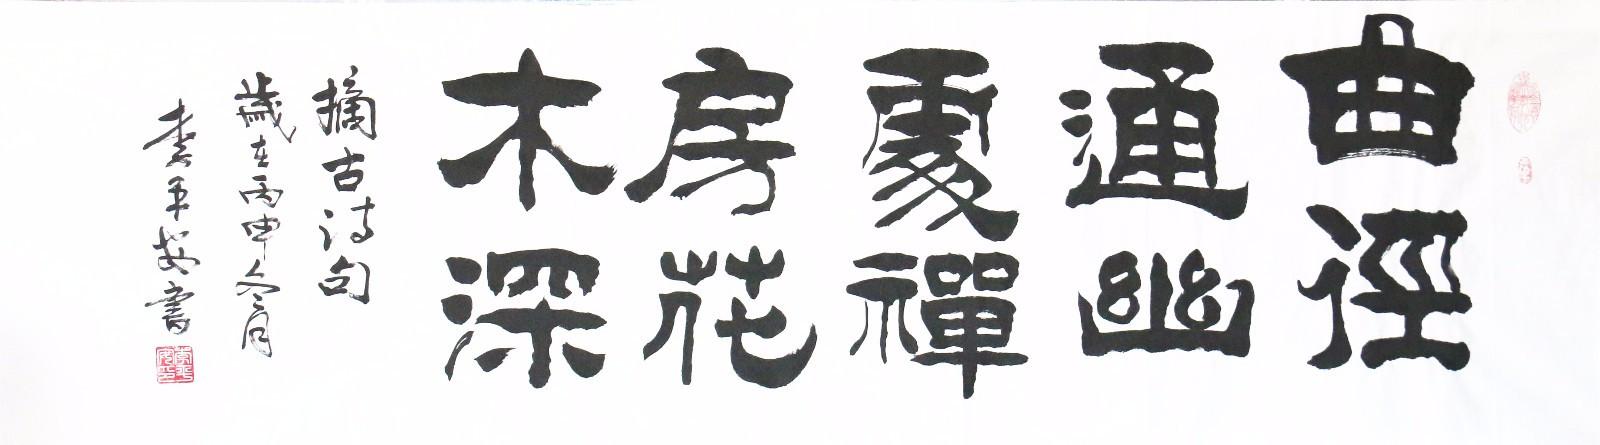 曲徑
通幽
處禪
房花
木深
摘古诗句
歲在丙申冬月
李平安書